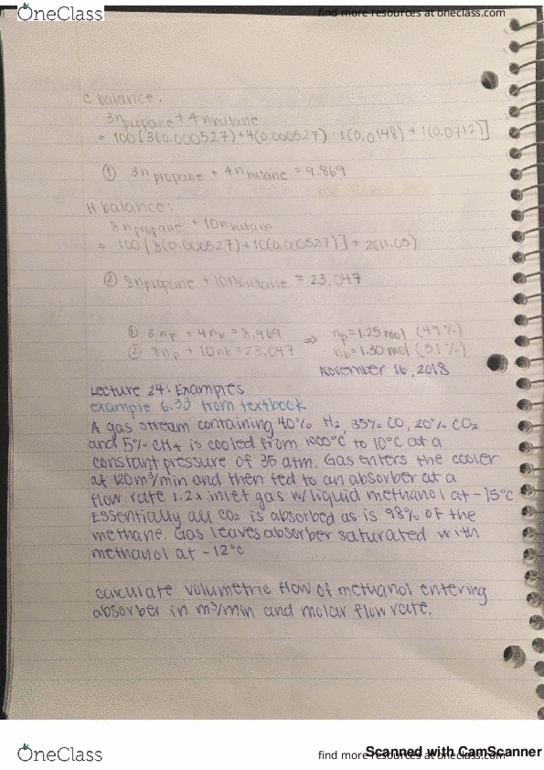 OneClass
find more resources at oneclass.com
C balance:
3npropane + 4nbutane
= 100[3(0.000527)+4(0.000527) 1(0.0148) + 1(0.0712)]
① 3npropane + 4nbutane = 9.869
H balance:
8npropane + 10nbutane
= 100[8(0.000527)+10(0.000527)] + 2(11.05)
② 8npropane + 10nbutane = 23.047
① 3np + 4nb = 8.969 ⇒ np=1.25mol (49%)
② 8np + 10nb = 23.047 nb=1.30 mol (51%)
November 16, 2018
Lecture 24: Examples
example 6.33 from textbook
A gas stream containing 40% H2, 35% CO, 20% CO2
and 5% CH4 is cooled from 1000°C to 10°C at a
constant pressure of 35 atm. Gas enters the cooler
at 120m³/min and then fed to an absorber at a
flow rate 1.2x inlet gas w/liquid methanol at -15°C
Essentially all CO2 is absorbed as is 98% of the
methane. Gas leaves absorber saturated with
methanol at -12°C
calculate volumetric flow of methanol entering
absorber in m³/min and molar flow rate.
OneClass
find more resources at oneclass.com
Scanned with CamScanner